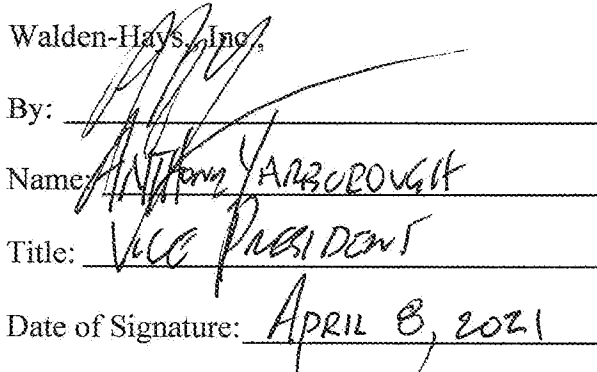 Walden-Hays, Inc.,
By:
Name: ANTHONY YARBOROUGH
Title: VICE PRESIDENT
Date of Signature: APRIL 8, 2021